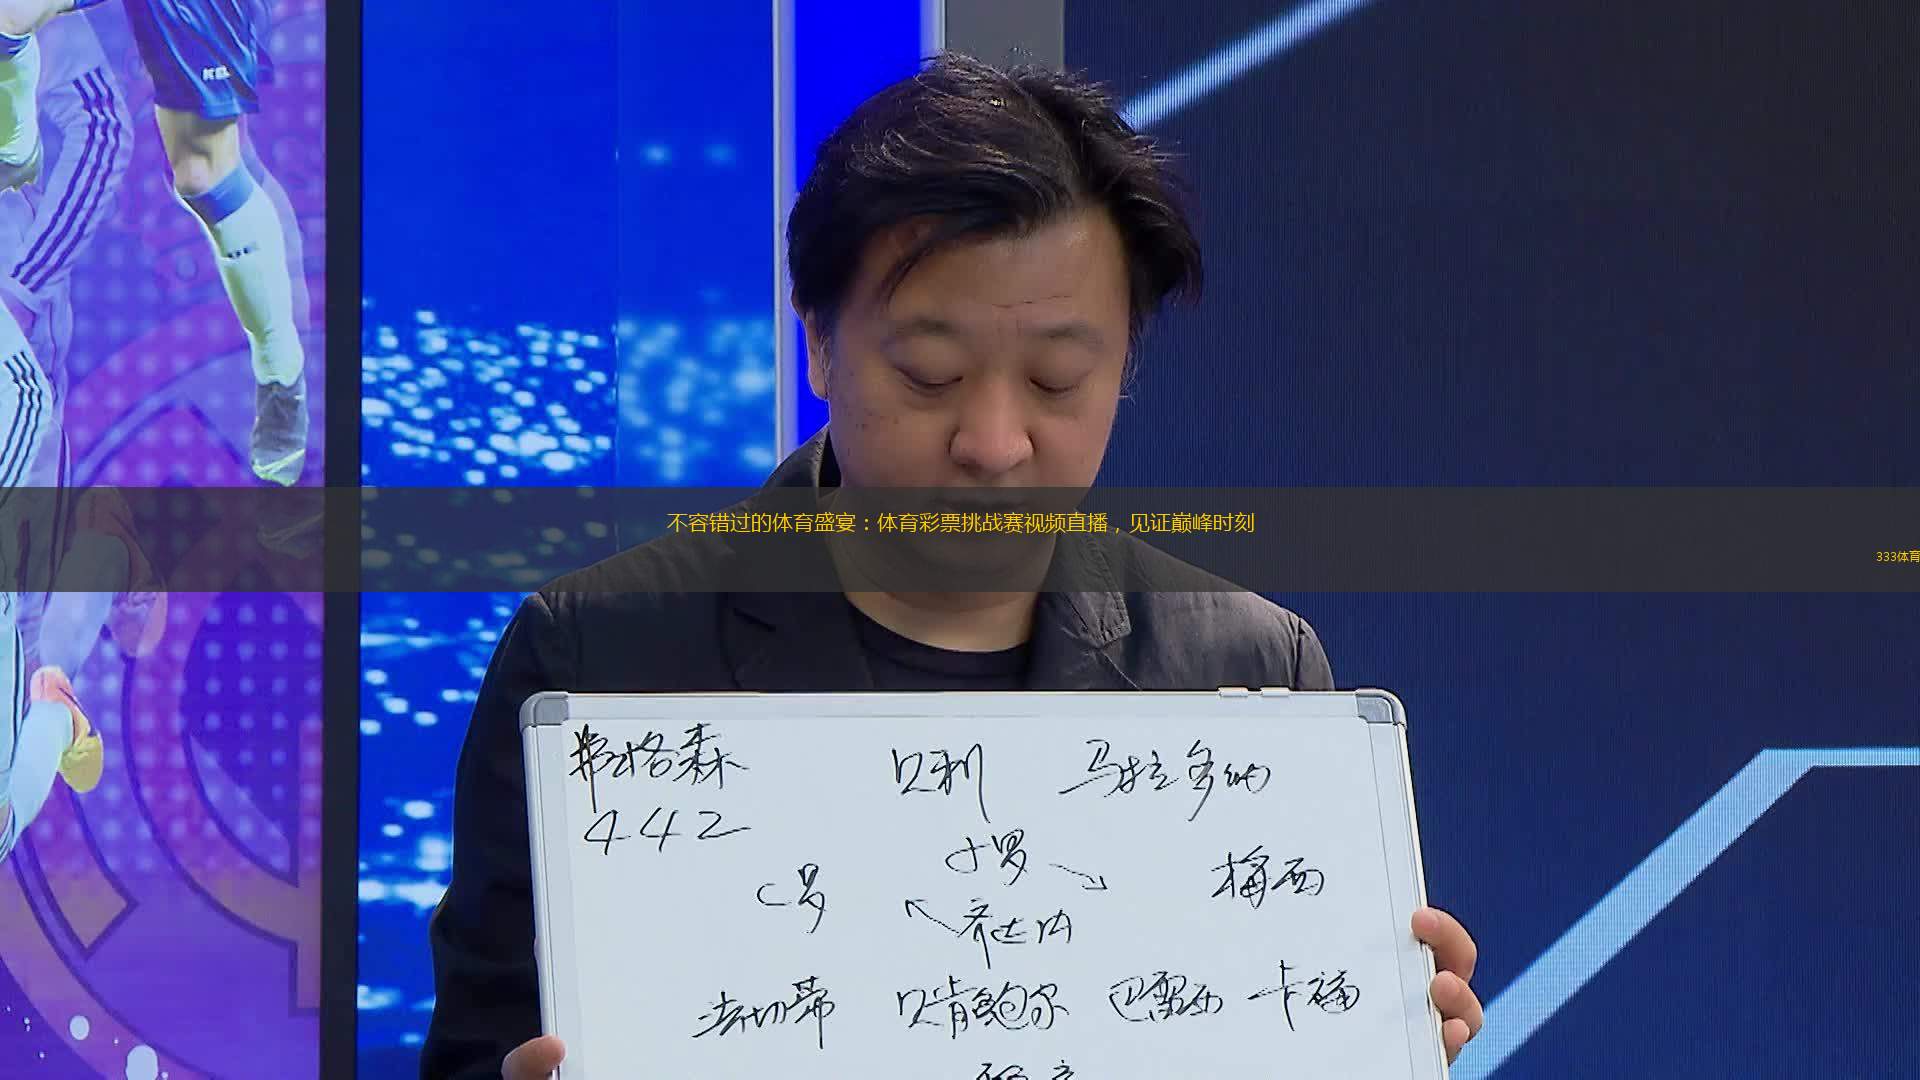 KEL
不容错过的体育盛宴：体育彩票挑战赛视频直播，见证巅峰时刻
333体育
弗格森 贝利 马拉多纳
442
小罗
C罗 梅西
齐达内
法切蒂 贝肯鲍尔 巴雷西 卡福